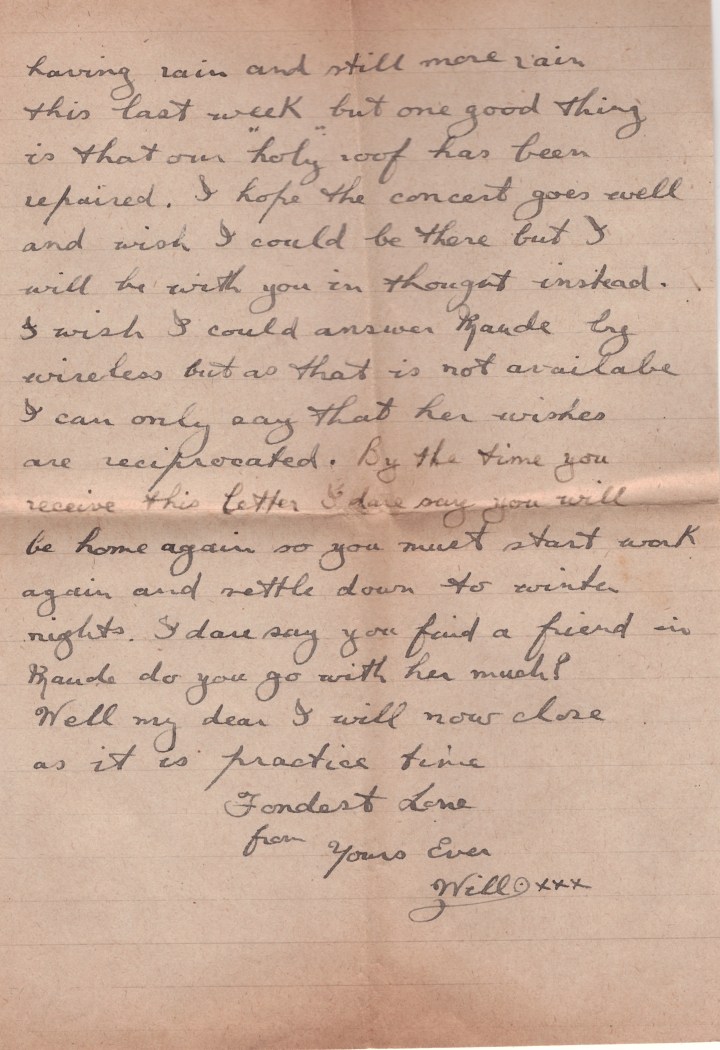 having rain and still more rain
this last week but one good thing
is that our "holy" roof has been
repaired. I hope the concert goes well
and wish I could be there but I
will be with you in thought instead.
I wish I could answer Maude by
wireless but as that is not availabe
I can only say that her wishes
are reciprocated. By the time you
receive this letter I dare say you will
be home again so you must start work
again and settle down to winter
nights. I dare say you find a friend in
Maude do you go with her much?
Well my dear I will now close
as it is practice time
Fondest Love
from Yours Ever
Will xxx